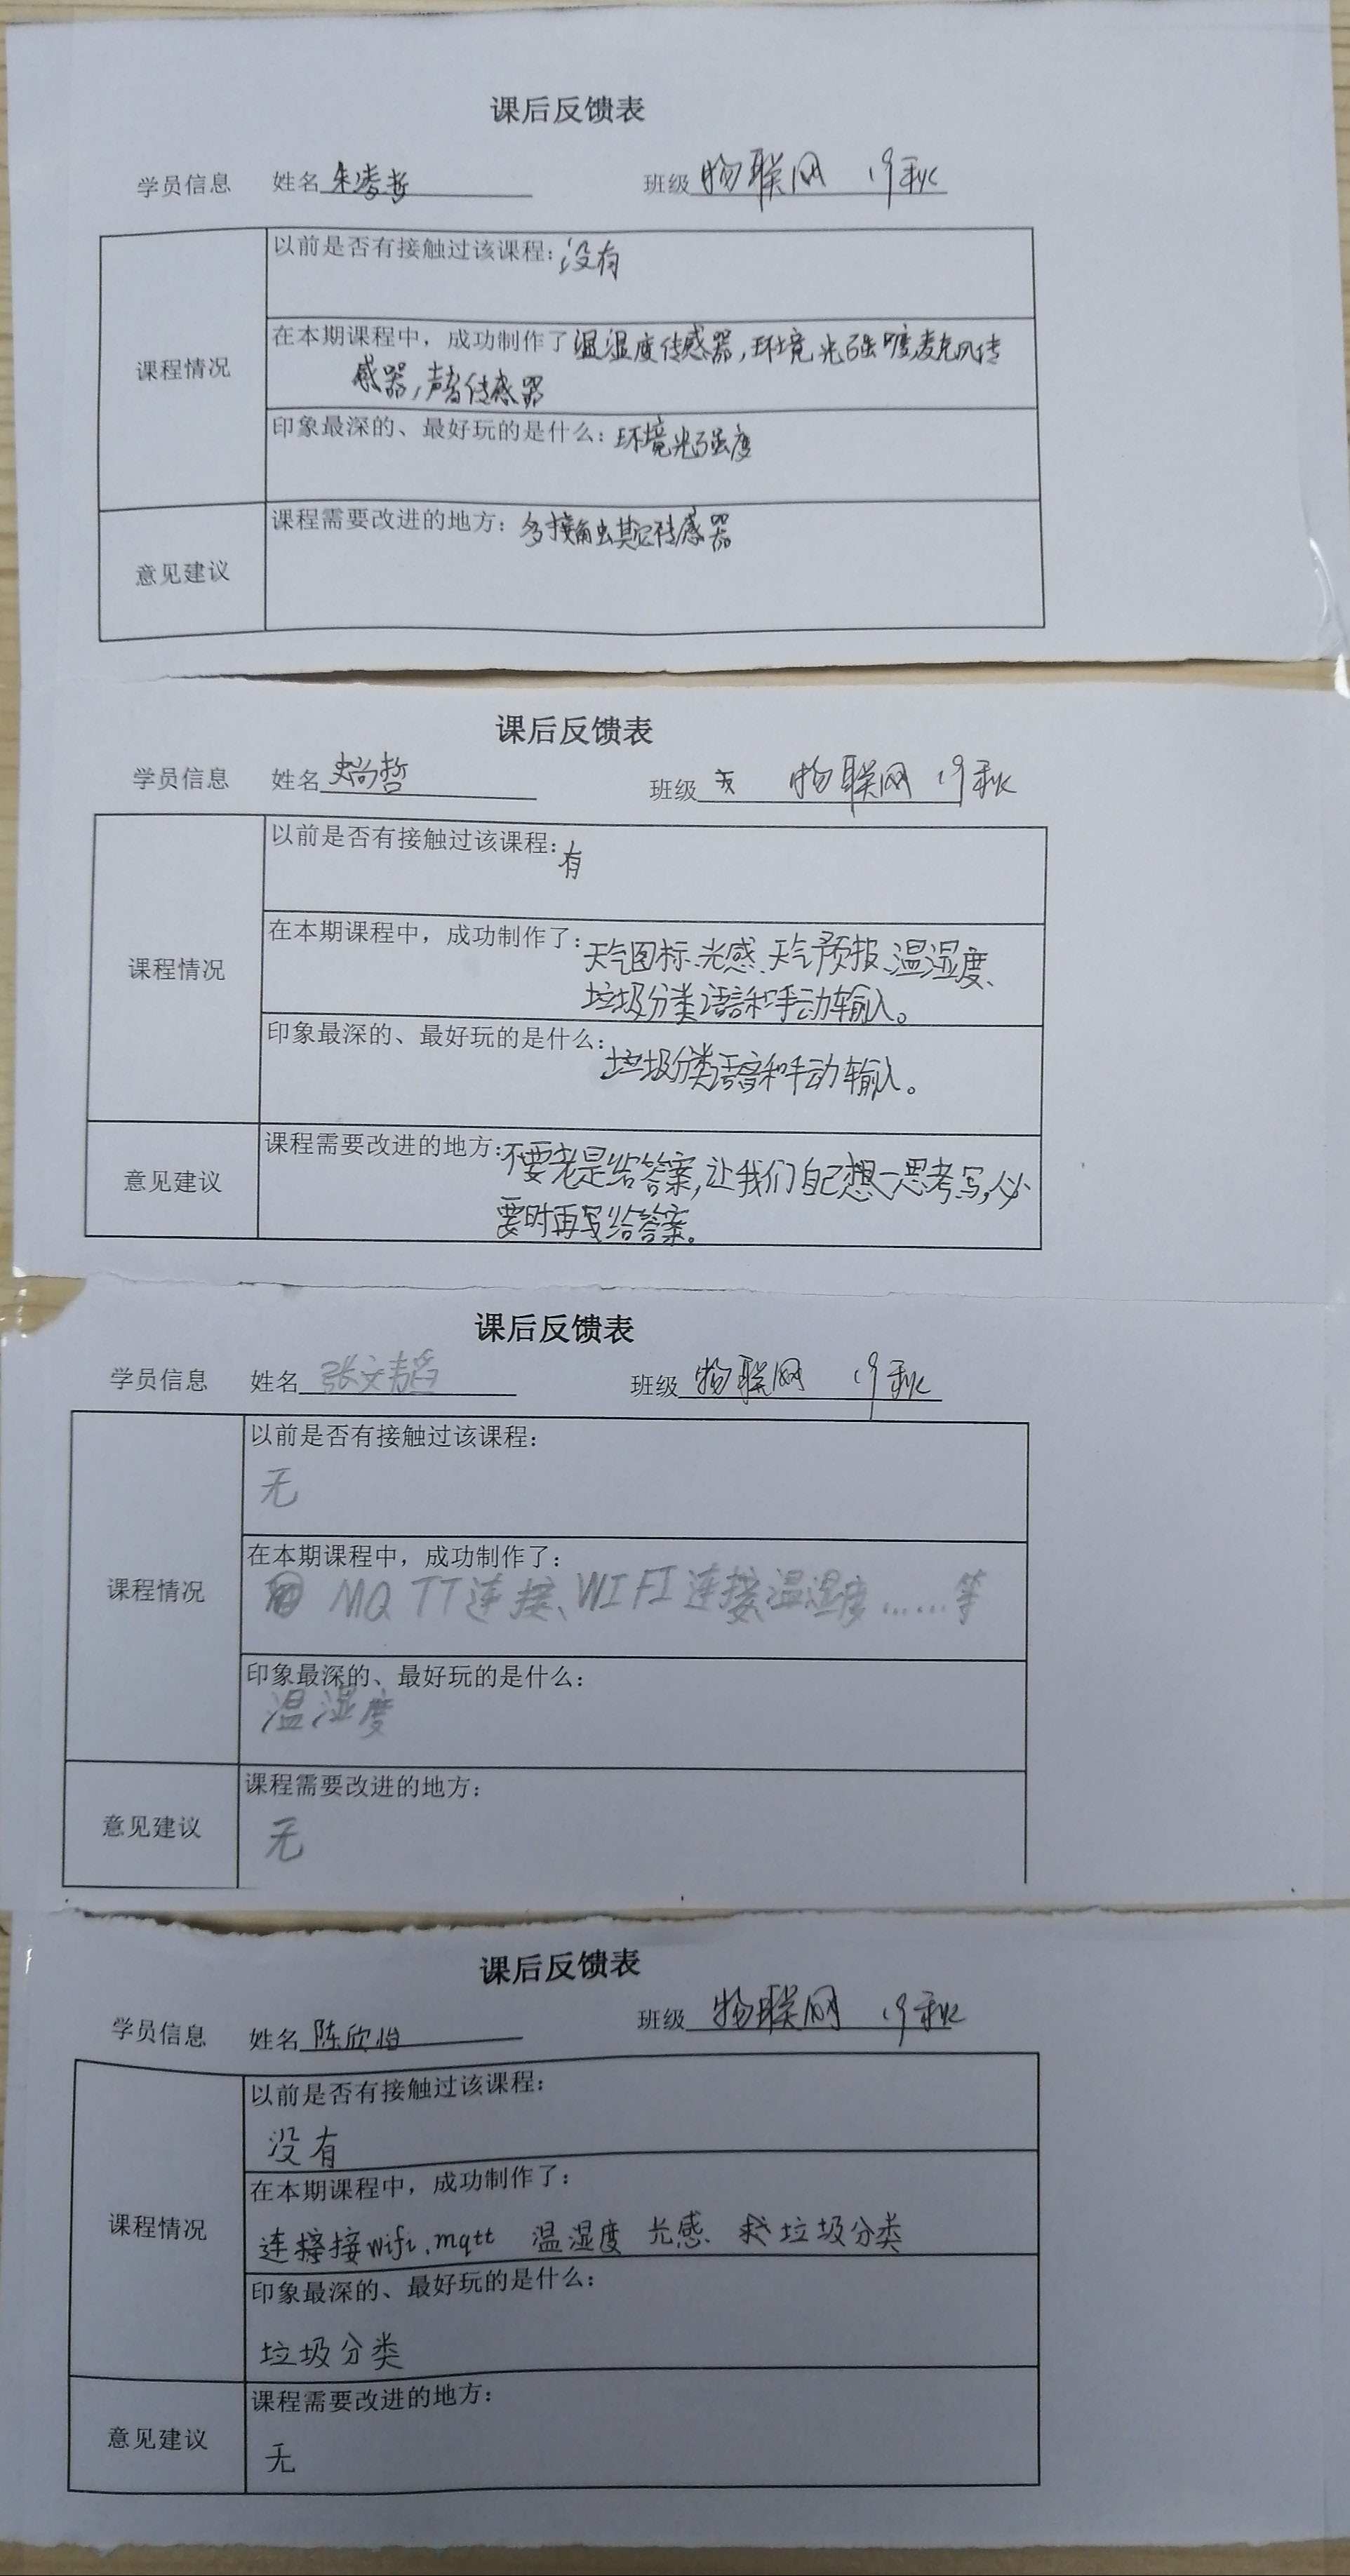 课后反馈表
学员信息 姓名 朱凌哲 班级 物联网 19秋
以前是否有接触过该课程：没有
课程情况
在本期课程中，成功制作了温湿度传感器，环境光强度,麦克风传
感器，声音传感器
印象最深的、最好玩的是什么：环境光强度
意见建议
课程需要改进的地方：多接触其它传感器
课后反馈表
学员信息 姓名 史尚哲 班级 物联网 19秋
以前是否有接触过该课程：有
课程情况
在本期课程中，成功制作了：天气图标、光感、天气预报、温湿度、
垃圾分类语言和手动输入。
印象最深的、最好玩的是什么：垃圾分类语音和手动输入。
意见建议
课程需要改进的地方：不要老是给答案，让我们自己想一思考写，必
要时再写给答案。
课后反馈表
学员信息 姓名 张文韬 班级 物联网 19秋
以前是否有接触过该课程：
无
课程情况
在本期课程中，成功制作了：
MQTT连接、WIFI连接、温湿度……等
印象最深的、最好玩的是什么：
温湿度
课程需要改进的地方：
意见建议
无
课后反馈表
学员信息 姓名 陈欣怡 班级 物联网 19秋
以前是否有接触过该课程：
没有
在本期课程中，成功制作了：
课程情况
连接wifi、mqtt 温湿度 光感 垃圾分类
印象最深的、最好玩的是什么：
垃圾分类
课程需要改进的地方：
意见建议
无